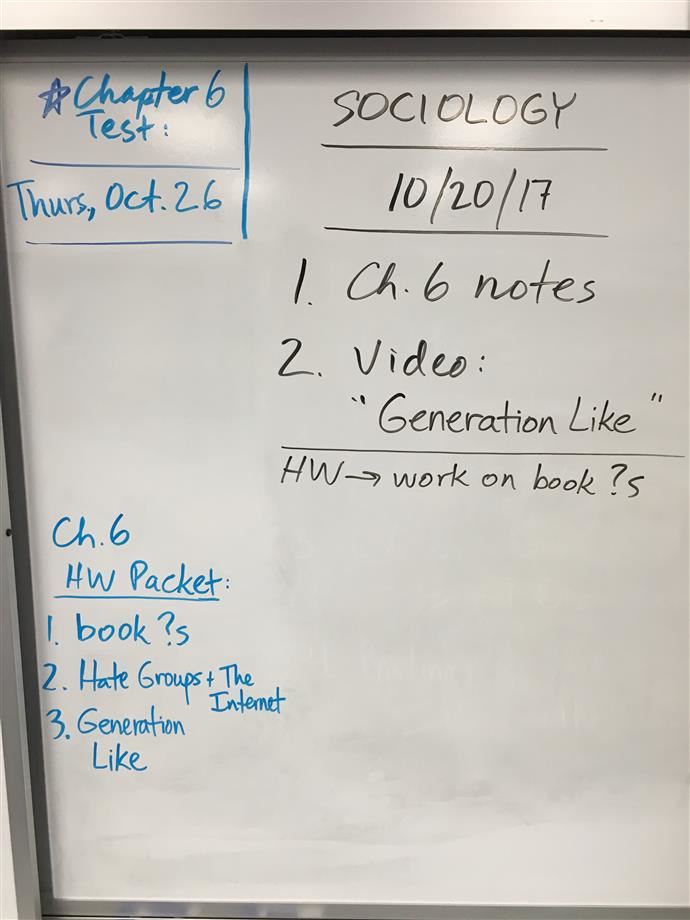 ☆Chapter 6
Test:
Thurs, Oct. 26
SOCIOLOGY
10/20/17
1. Ch. 6 notes
2. Video:
"Generation Like"
HW → work on book ?s
Ch. 6
HW Packet:
1. book ?s
2. Hate Groups + The
Internet
3. Generation
Like